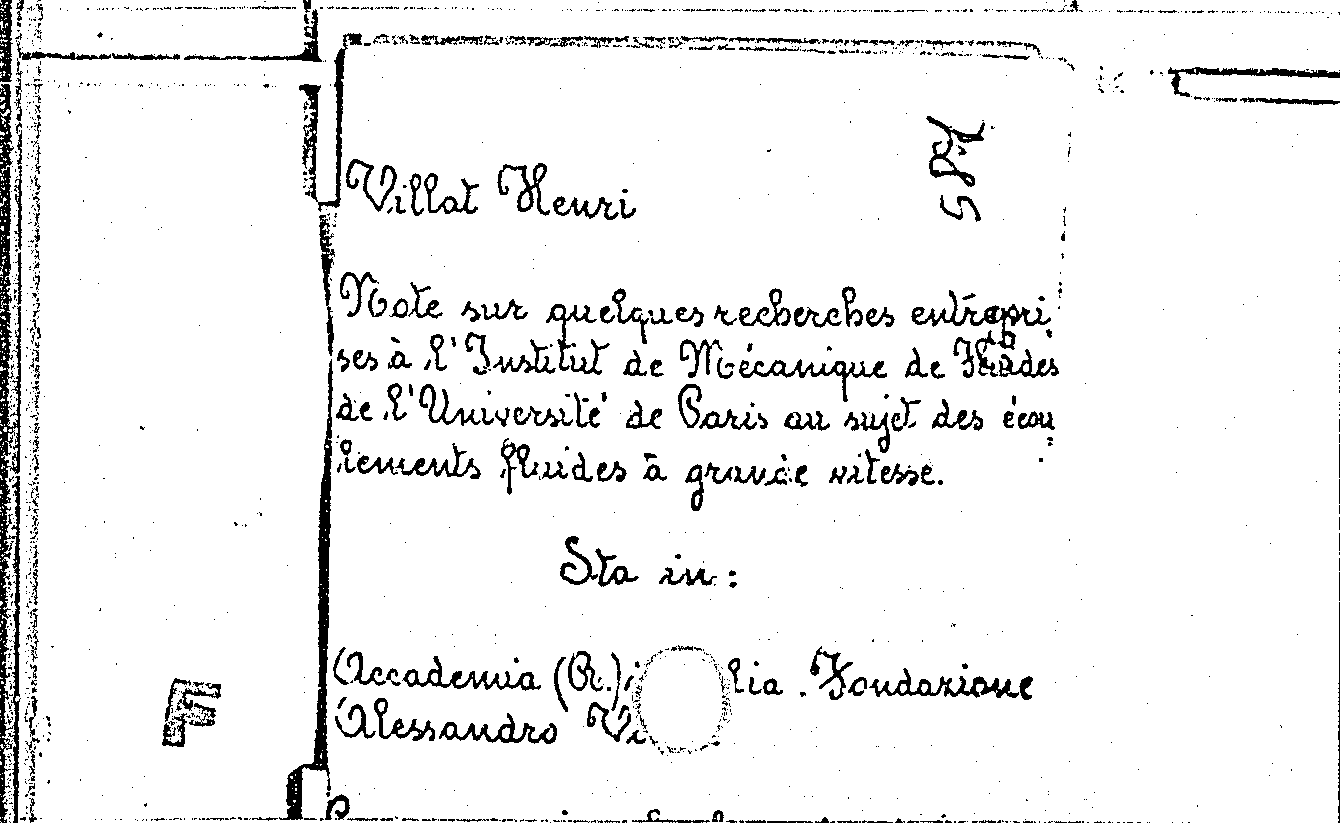 Villat Henri
Note sur quelques recherches entrepri
ses à l'Institut de Mécanique de
de l'Université de Paris au sujet des écou
lements fluides à grande vitesse.
Sta in:
Accademia (R.) . Fondazione
Alessandro
F